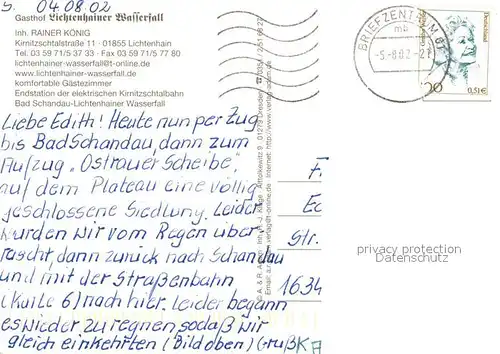 S. 04.08.02
Gasthof Lichtenhainer Wasserfall
Inh. RAINER KÖNIG
Kirnitzschtalstraße 11 · 01855 Lichtenhain
Tel. 03 59 71/5 37 33 · Fax 03 59 71/5 77 80
lichtenhainer-wasserfall@t-online.de
www.lichtenhainer-wasserfall.de
komfortable Gästezimmer
Endstation der elektrischen Kirnitzschtalbahn
Bad Schandau-Lichtenhainer Wasserfall
Liebe Edith! Heute nun per Zug
bis Bad Schandau, dann zum
Aufzug, "Ostrauer Scheibe",
auf dem Plateau eine völlig
geschlossene Siedlung. Leider
wurden wir vom Regen über
rascht, dann zurück nach Schandau
und mit der Straßenbahn
nach hier. Leider begann
es wieder zu regnen, sodaß wir
gleich einkehrten (Bild oben) Gruß
BRIEFZENTRUM 01
mb
-5.-8.02-21
Deutschland
0,51€
F
Ec
Str.
1634
privacy protection
Datenschutz